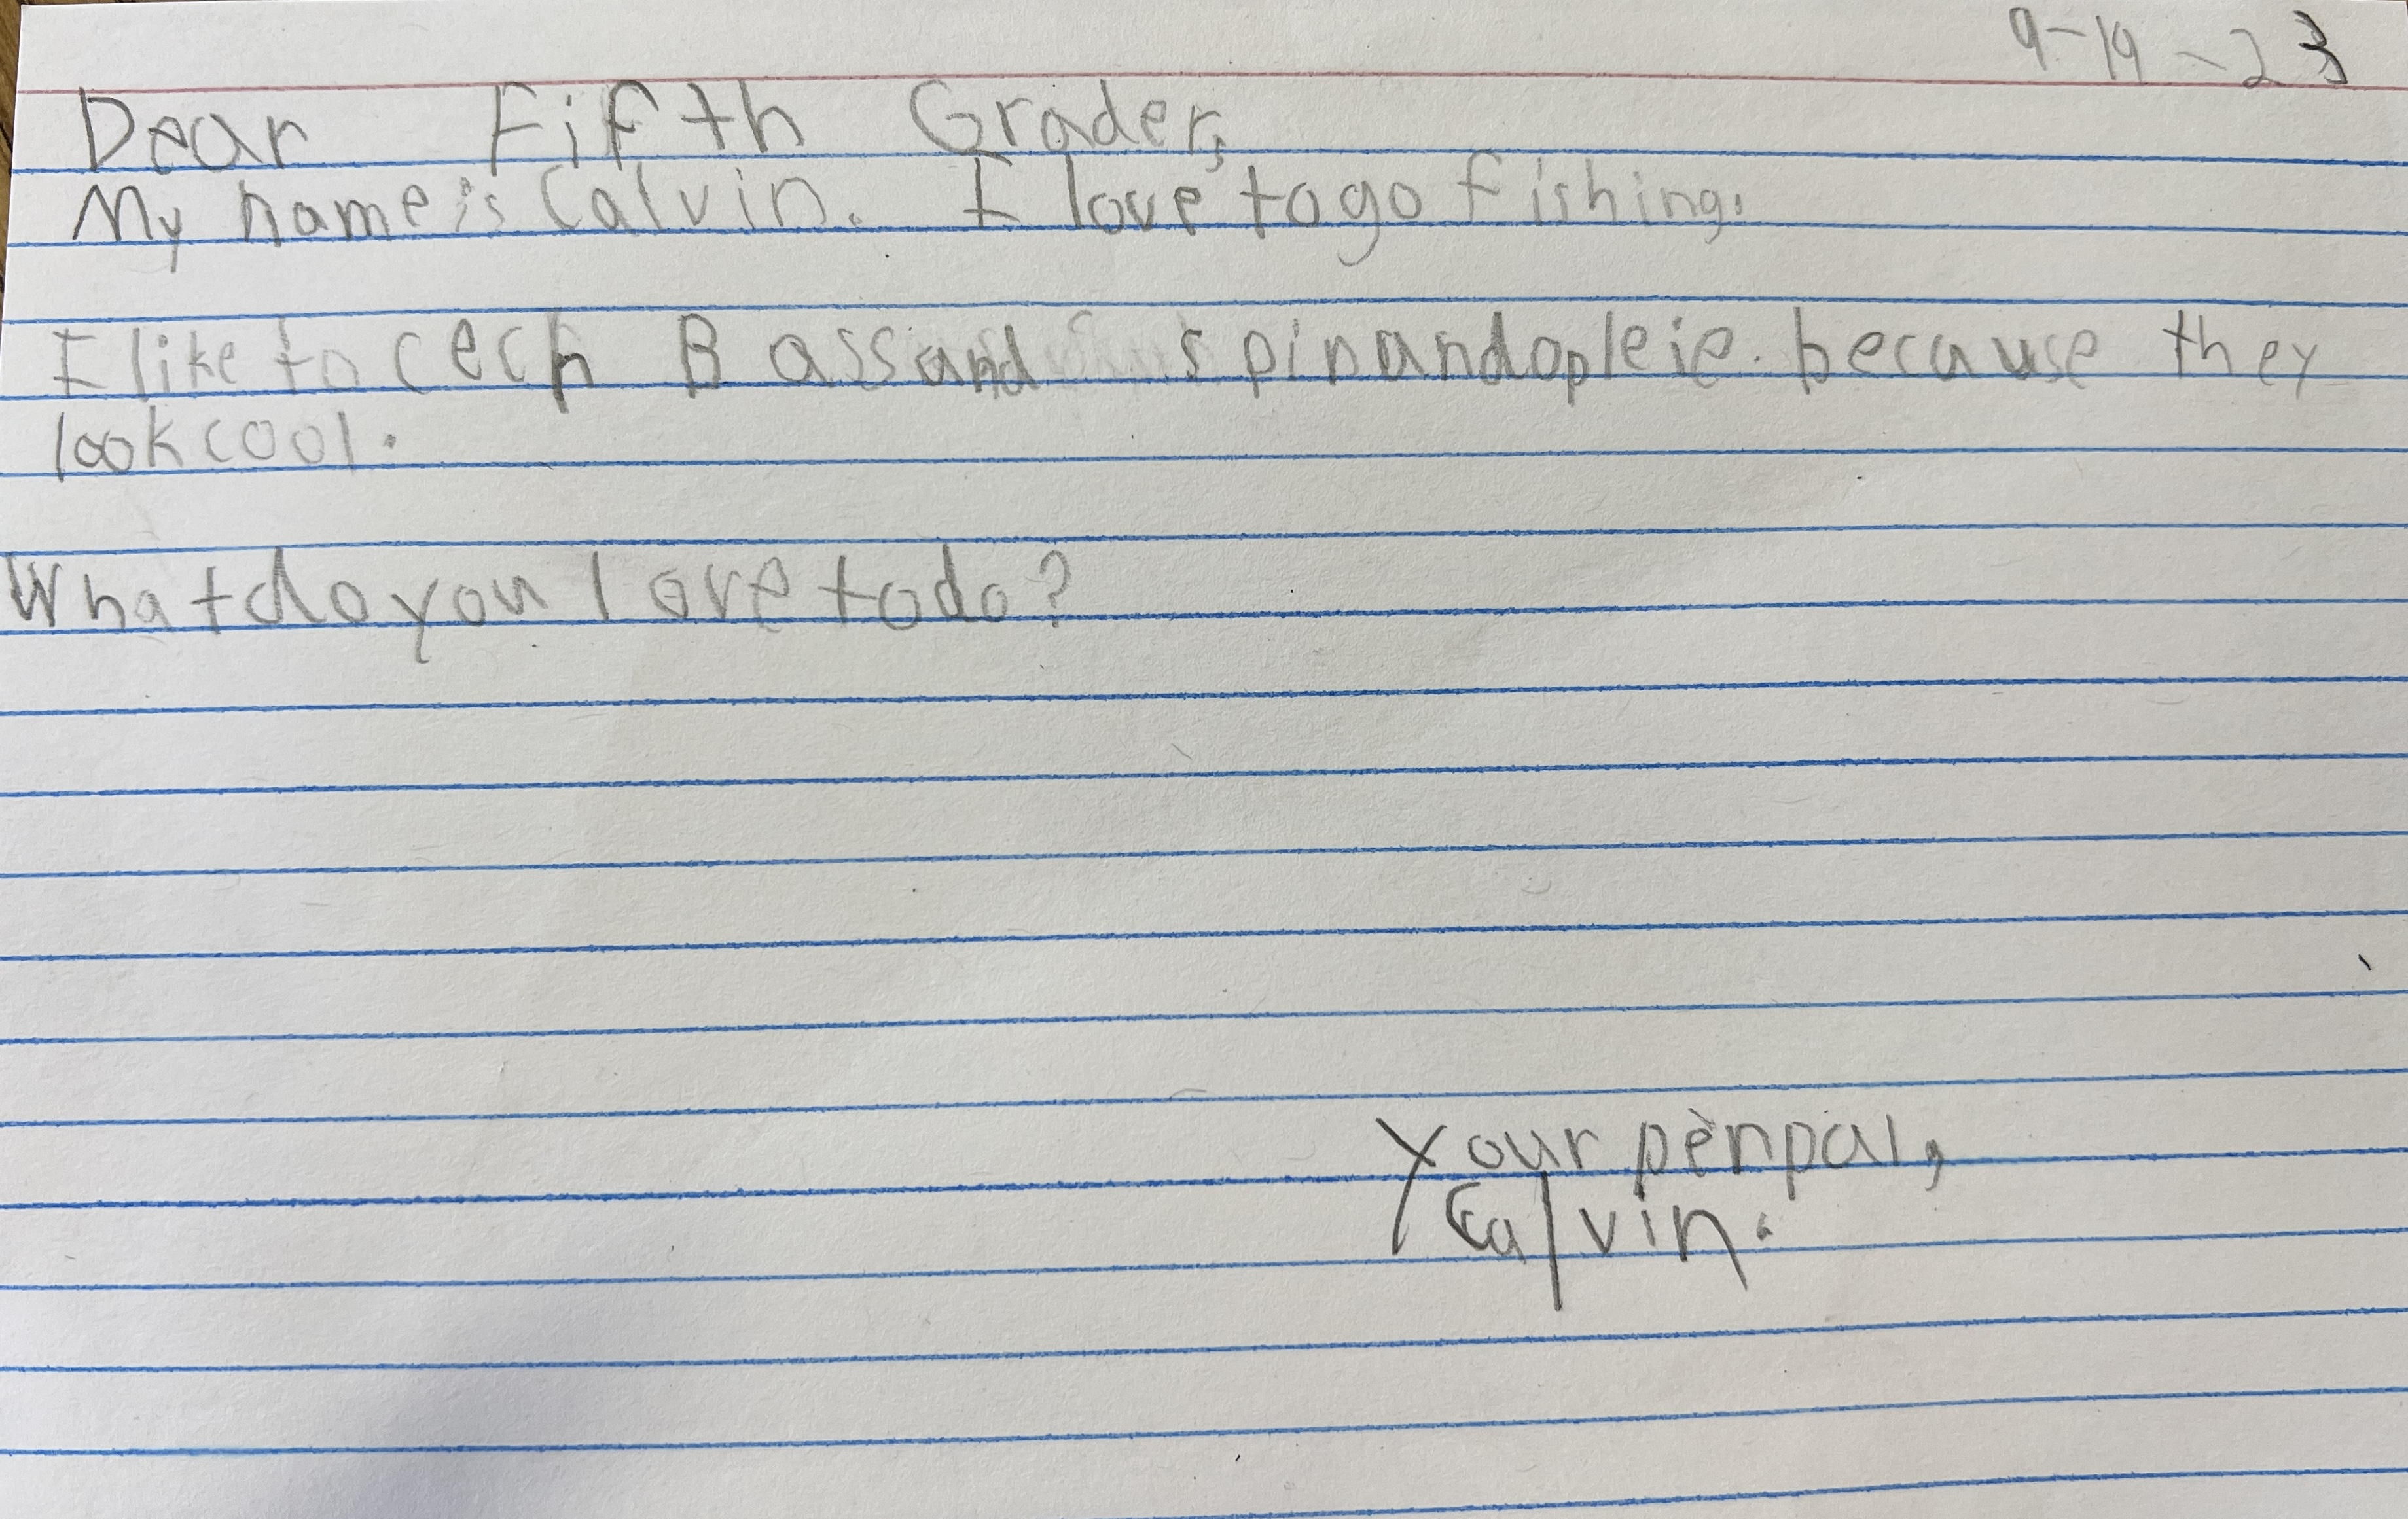 9-19-23
Dear Fifth Grader,
My name is Calvin. I love to go fishing.
I like to cech Bass and spinandopleie. because they
look cool.
What do you love to do?
Your penpal,
Calvin.